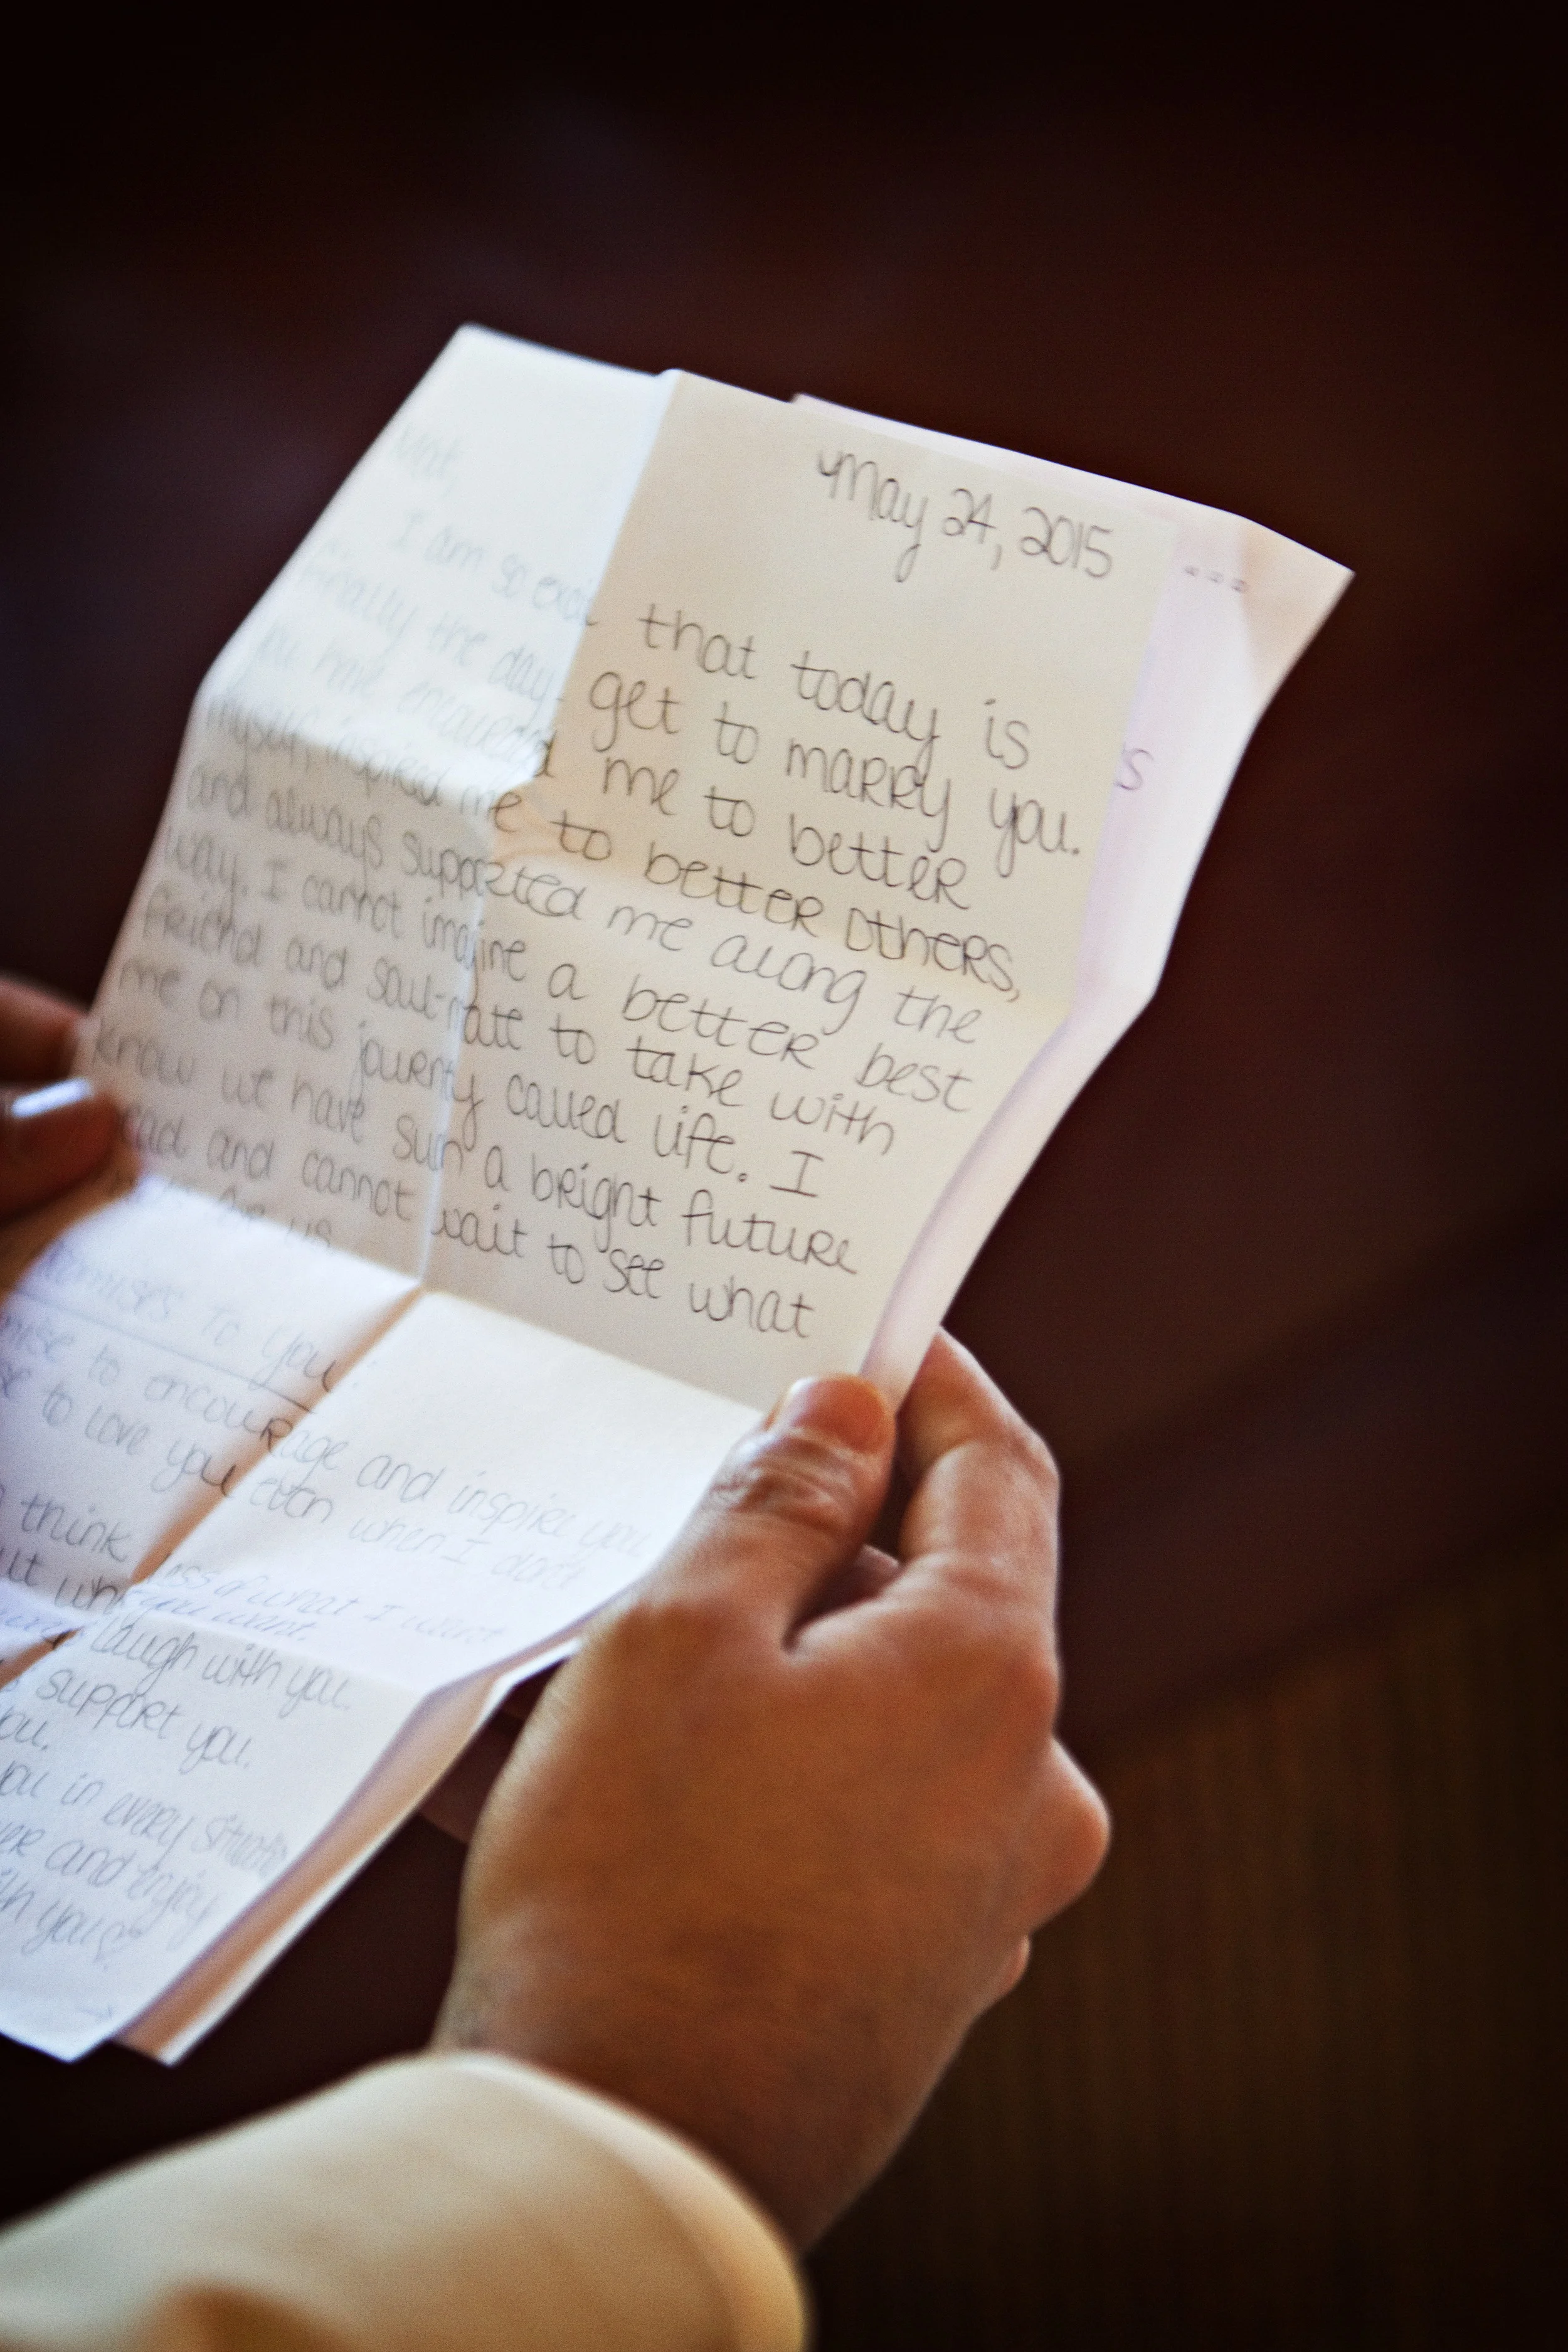 May 24, 2015
Mat,
I am so exci that today is
finally the day I get to marry you.
You have encouraged me to better
myself, inspired me to better others,
and always supported me along the
way. I cannot imagine a better best
friend and soul-mate to take with
me on this journey called life. I
know we have such a bright future
ead and cannot wait to see what
for us
omises to you:
mise to encourage and inspire you
se to love you even when I don't
think less of what I want
you want.
laugh with you.
support you.
you.
you in every situatio
er and enjoy
th you